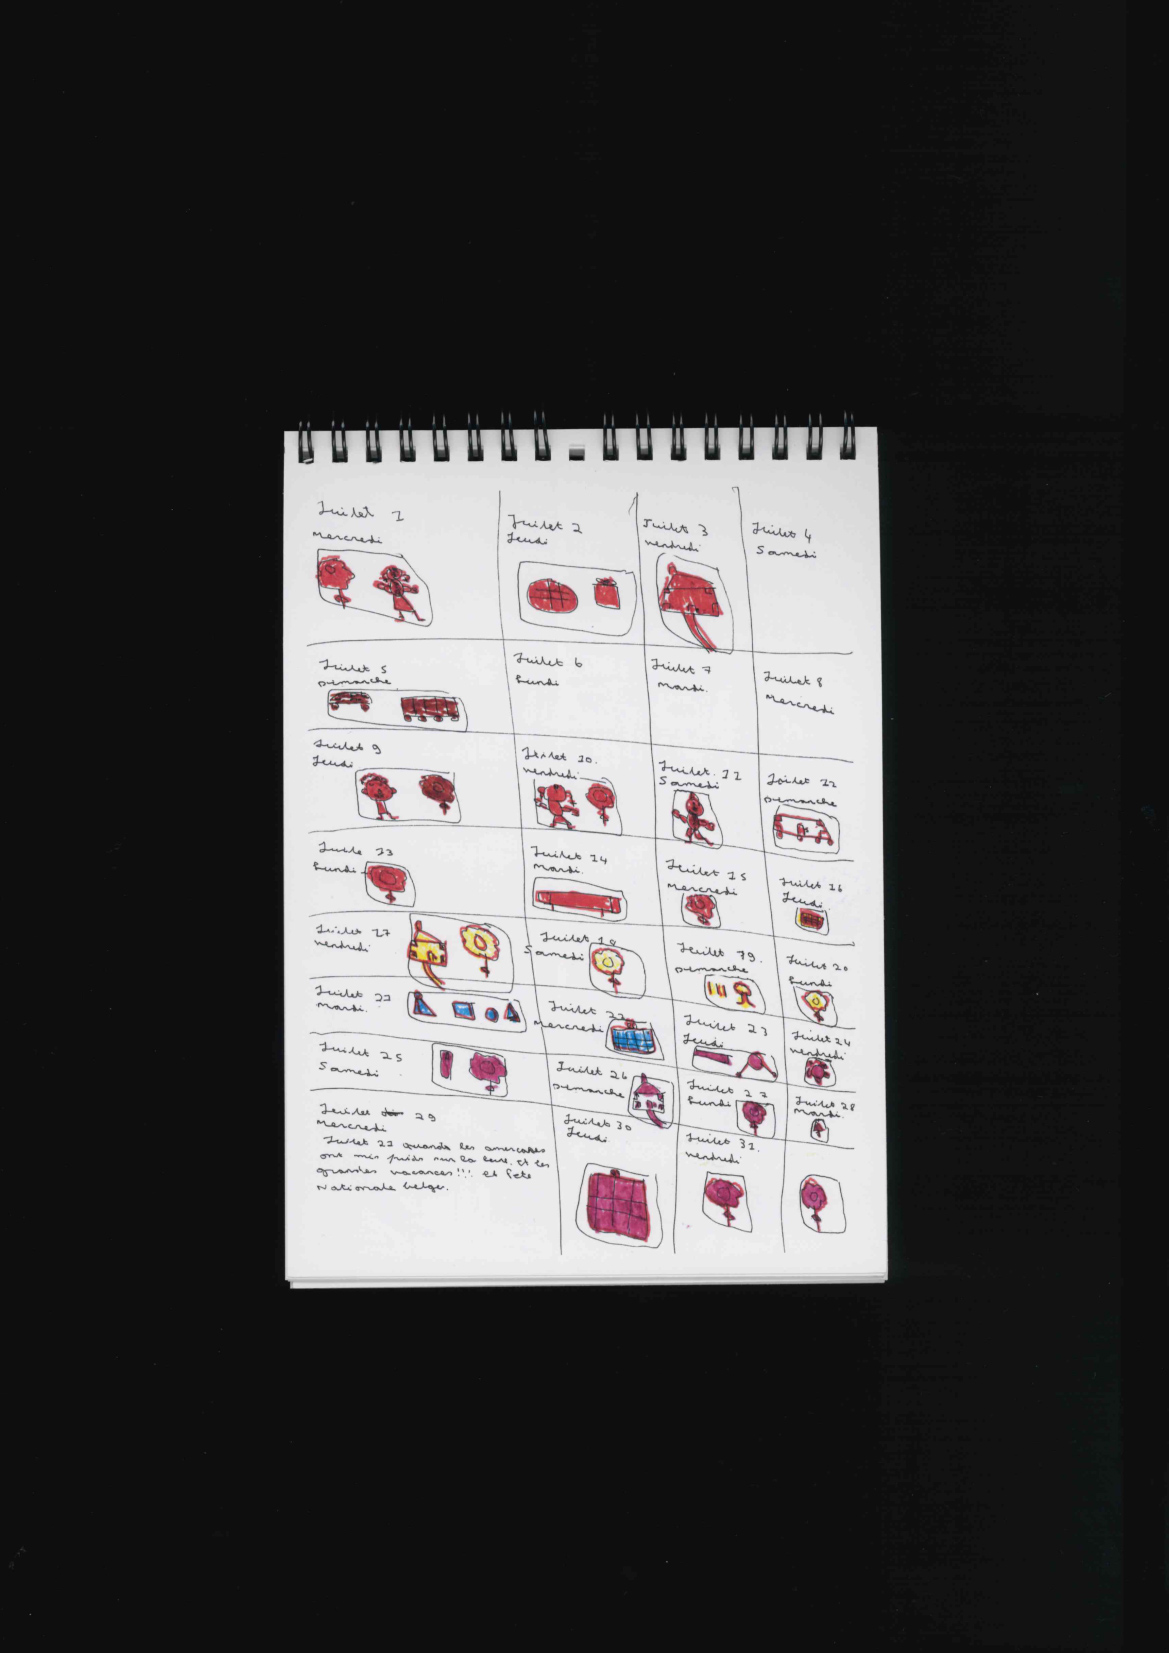 Juilet 1
Mercredi
Juilet 2
Jeudi
Juilet 3
vendredi
Juilet 4
Samedi
Juilet 5
Dimanche
Juilet 6
Lundi
Juilet 7
Mardi.
Juilet 8
Mercredi
Juilet 9
Jeudi
Juilet 10.
vendredi
Juilet. 11
Samedi
Juilet 12
Dimanche
Juile 13
Lundi
Juilet 14
Mardi.
Juilet 15
Mercredi
Juilet 16
Jeudi
Juilet 17
vendredi
Juilet 18
Samedi
Juilet 19.
Dimanche
Juilet 20
Lundi
Juilet 21
Mardi.
Juilet 22
Mercredi
Juilet 23
Jeudi
Juilet 24
vendredi
Juilet 25
Samedi
Juilet 26
Dimanche
Juilet 27
Lundi
Juilet 28
Mardi.
Juilet 29
Mercredi
Juilet 21 quands les
ont mis sur la lune. et les
grandes vacances!!! et fete
Nationale belge.
Juilet 30
Jeudi
Juilet 31.
vendredi